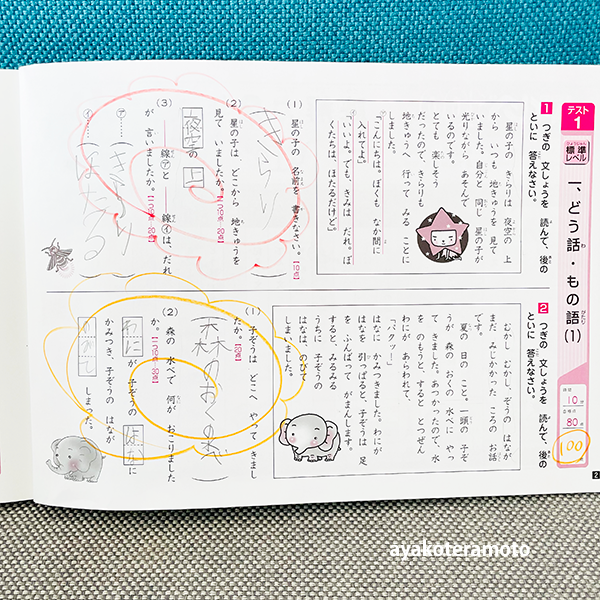 テスト
1
標準
レベル
一、どう話・もの語(1)
時間
10分
合格点
80点
100
1 つぎの 文しょうを 読んで、後の
といに 答えなさい。
星の子の きらりは 夜空の 上
から いつも 地きゅうを 見て
いました。自分と 同じ 星の子が
光りながら あそんで
いるのです。
とても 楽しそう
だったので、きらりも
地きゅうへ 行って みる ことに
しました。
「こんにちは。ぼくも なか間に
入れてよ。」
「いいよ。でも、きみは だれ。ぼ
くたちは、ほたるだけど。」
(1) 星の子の 名前を 書きなさい。【10点】
きらり
(2) 星の子は、どこから 地きゅうを
見て いましたか。
夜空の 上
(3) 線㋐と 線㋑は、だれ
が 言いましたか。
㋐(きらり)
㋑(ほたる)
2 つぎの 文しょうを 読んで、後の
といに 答えなさい。
むかし、むかし、ぞうの はなが
まだ みじかかった ころの お話
です。
夏の 日の こと。一頭の 子ぞ
うが 森の おくの 水べに やっ
て きました。あつかったので、水
を のもうと すると とつぜん
わにが あらわれて、
「バクッー」
はなに かみつきました。わにが
はなを 引っぱると、子ぞうは 足
を ふんばって がまんします。
すると、みるみる
うちに 子ぞうの
はなは、のびて
しまいました。
(1) 子ぞうは どこへ やって きまし
たか。
(森のおくの水べ)
(2) 森の 水べで 何が おこりました
か。
わにが 子ぞうの はなに
かみつき、子ぞうの はなが
のびて しまった。
2
ayakoteramoto